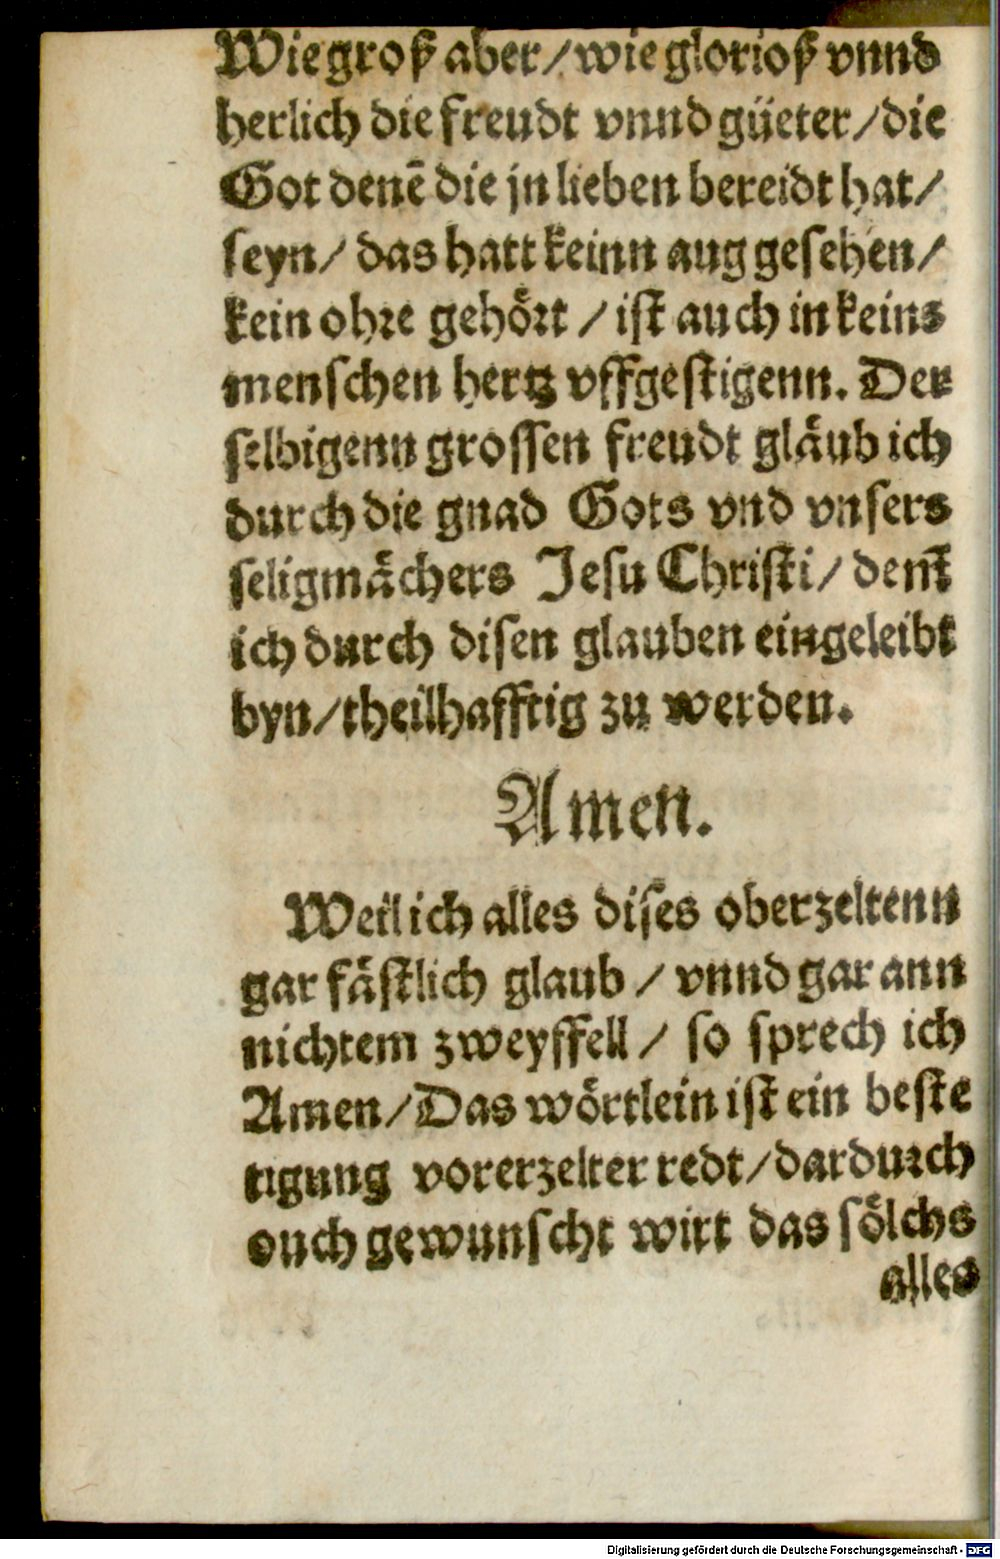 Wie groß aber / wie glorioß vnnd
herlich die freudt vnnd güeter / die
Got denē die jn lieben bereidt hat /
seyn / das hatt keinn aug gesehen /
kein ohre gehört / ist auch in keins
menschen hertz vffgestigenn. Der
selbigenn grossen freudt gläub ich
durch die gnad Gots vnd vnsers
seligmåchers Jesu Christi / dem̄
ich durch disen glauben eingeleibt
byn / theilhafftig zu werden.
Amen.
Weil ich alles dises oberzeltenn
gar fåstlich glaub / vnnd gar ann
nichtem zweyffell / so sprech ich
Amen / Das wörtlein ist ein beste
tigung vorerzelter redt / dardurch
ouch gewunscht wirt das sölchs
alles
Digitalisierung gefördert durch die Deutsche Forschungsgemeinschaft - DFG